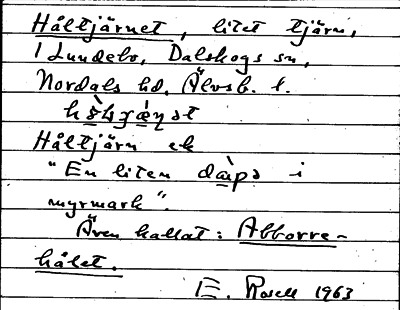 Håltjärnet, litet tjärn,
i Lundebo, Dalskogs sn,
Nordals hd, Älvsb. l.
Håltjärn ek
"En liten dαps i
myrmark".
Även kallat: Abborre-
hålet.
E. Rosell 1963